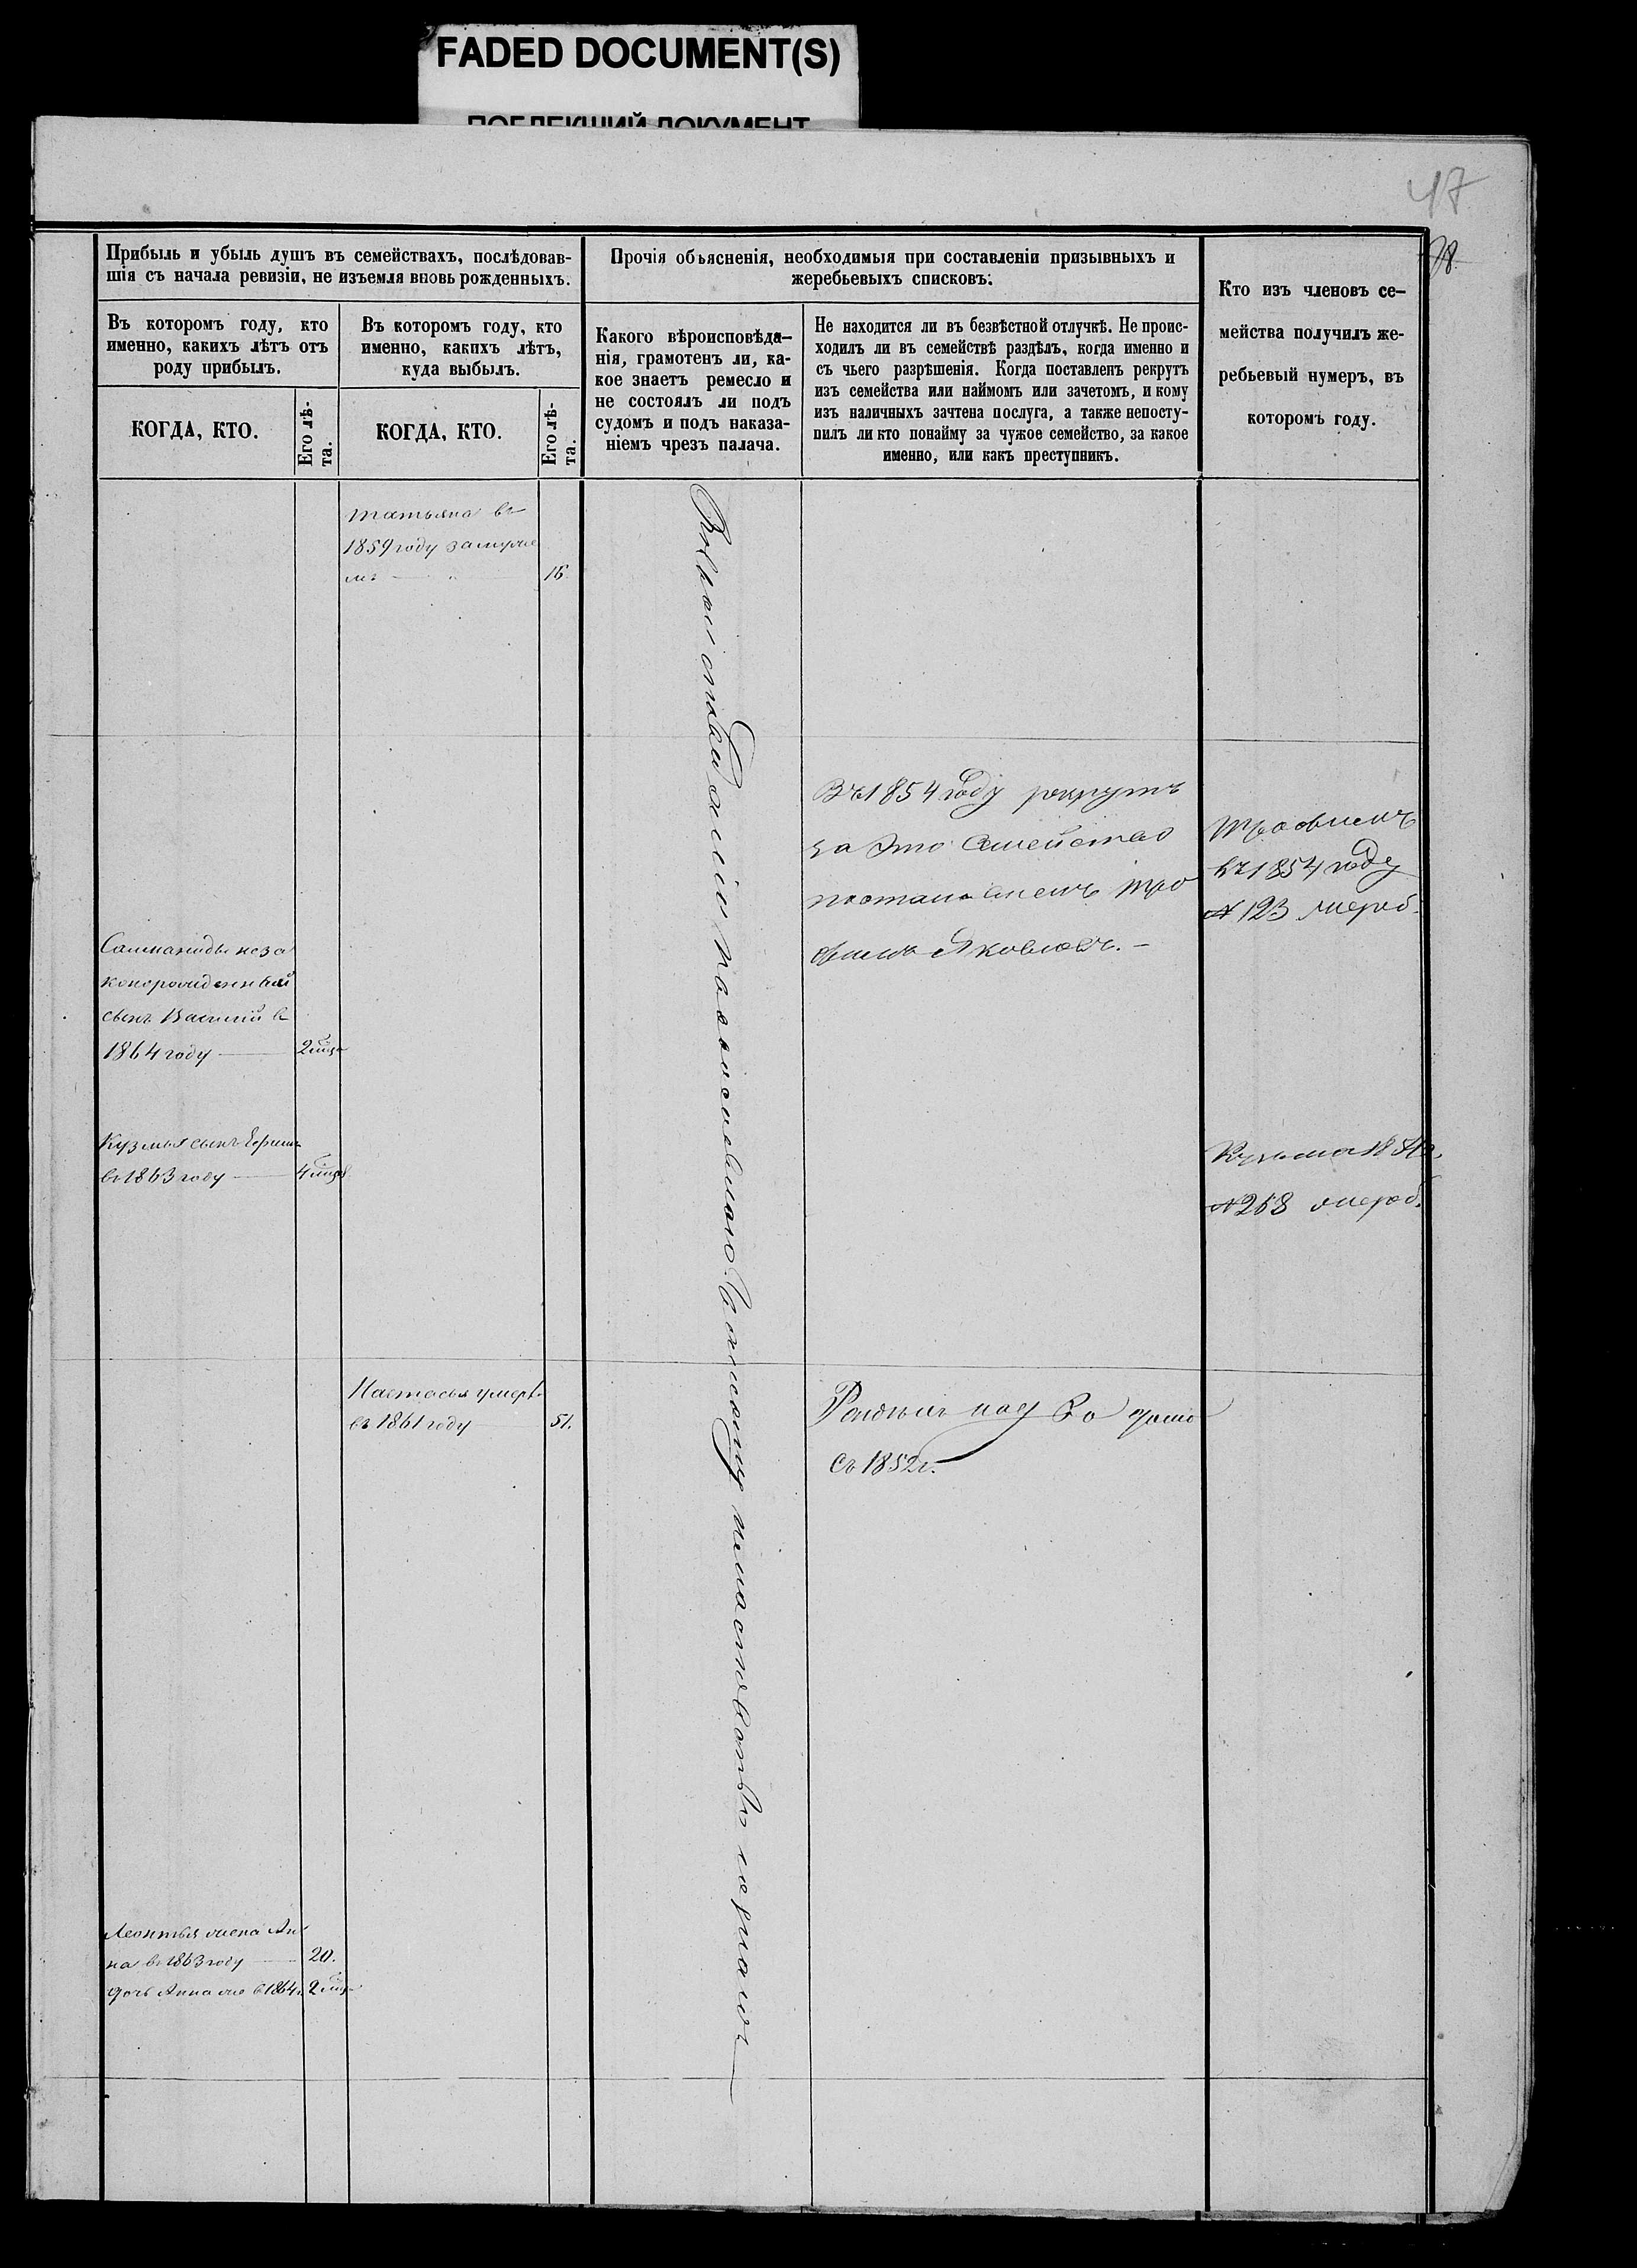 FADED DOCUMENT(S)
ПОБЛЕКШИЙ ДОКУМЕНТ
47
98
Прибыль и убыль душъ въ семействахъ, послѣдовав-
шія съ начала ревизіи, не изъемля вновь рожденныхъ.
Въ которомъ году, кто
именно, какихъ лѣтъ отъ
роду прибылъ.
КОГДА, КТО.
Его лѣ-
та.
Въ которомъ году, кто
именно, какихъ лѣтъ,
куда выбылъ.
КОГДА, КТО.
Его лѣ-
та.
Прочія объясненія, необходимыя при составленіи призывныхъ и
жеребьевыхъ списковъ:
Какого вѣроисповѣда-
нія, грамотенъ ли, ка-
кое знаетъ ремесло и
не состоялъ ли подъ
судомъ и подъ наказа-
ніемъ чрезъ палача.
Не находится ли въ безвѣстной отлучкѣ. Не проис-
ходилъ ли въ семействѣ раздѣлъ, когда именно и
съ чьего разрѣшенія. Когда поставленъ рекрутъ
изъ семейства или наймомъ или зачетомъ, и кому
изъ наличныхъ зачтена послуга, а также непосту-
пилъ ли кто понайму за чужое семейство, за какое
именно, или какъ преступникъ.
Кто изъ членовъ се-
мейства получилъ же-
ребьевый нумеръ, въ
которомъ году.
Татьяна въ
1859 году замуже
мъ 16
Въ 1854 году рекрутъ
за это семейство
поставленъ Тро
фимъ Яковлевъ. —
Трофимъ
въ 1854 году
№ 123 жереб.
неза
конорожденный
сынъ Василий въ
1864 году — 2
Кузмы сынъ
въ 1863 году — 4
Кузьма
№ 268 жереб.
Настасья умерла
въ 1861 году 51.
съ 1852 г.
Леонтья жена Ан
на въ 1863 году — 20.
дочь Анна же в 1864 г. 2